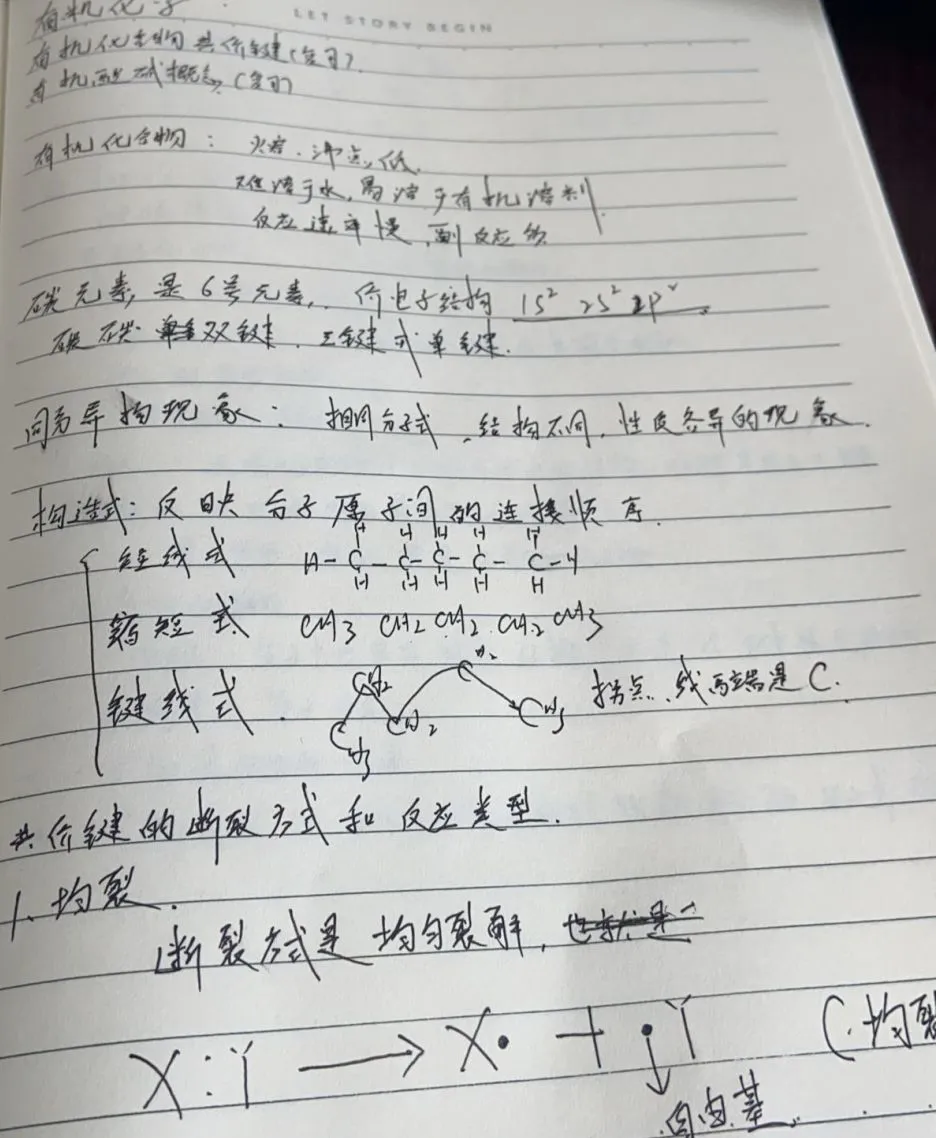 有机化学
LET STORY BEGIN
有机化合物共价键(复习)
有机酸碱概念(复习)
有机化合物: 火容、沸点,低.
难溶于水,易溶于有机溶剂
反应速率慢,副反应多
碳元素,是6号元素, 价电子结构 1S² 2S² 2P²
碳碳 双键、三键或单键.
同分异构现象: 相同分子式、结构不同,性质各异的现象.
构造式: 反映分子原子间的连接顺序.
H H H H H
短线式 H-C-C-C-C-C-H
H H H H H
缩短式 CH3 CH2 CH2 CH2 CH3
键线式. CH3 CH2 CH2 CH2 CH3 拐点、线两端是C.
共价键的断裂方式和反应类型.
1、均裂.
断裂方式是均匀裂解, 也就是
X:Y → X· + ·Y (·均裂
自由基